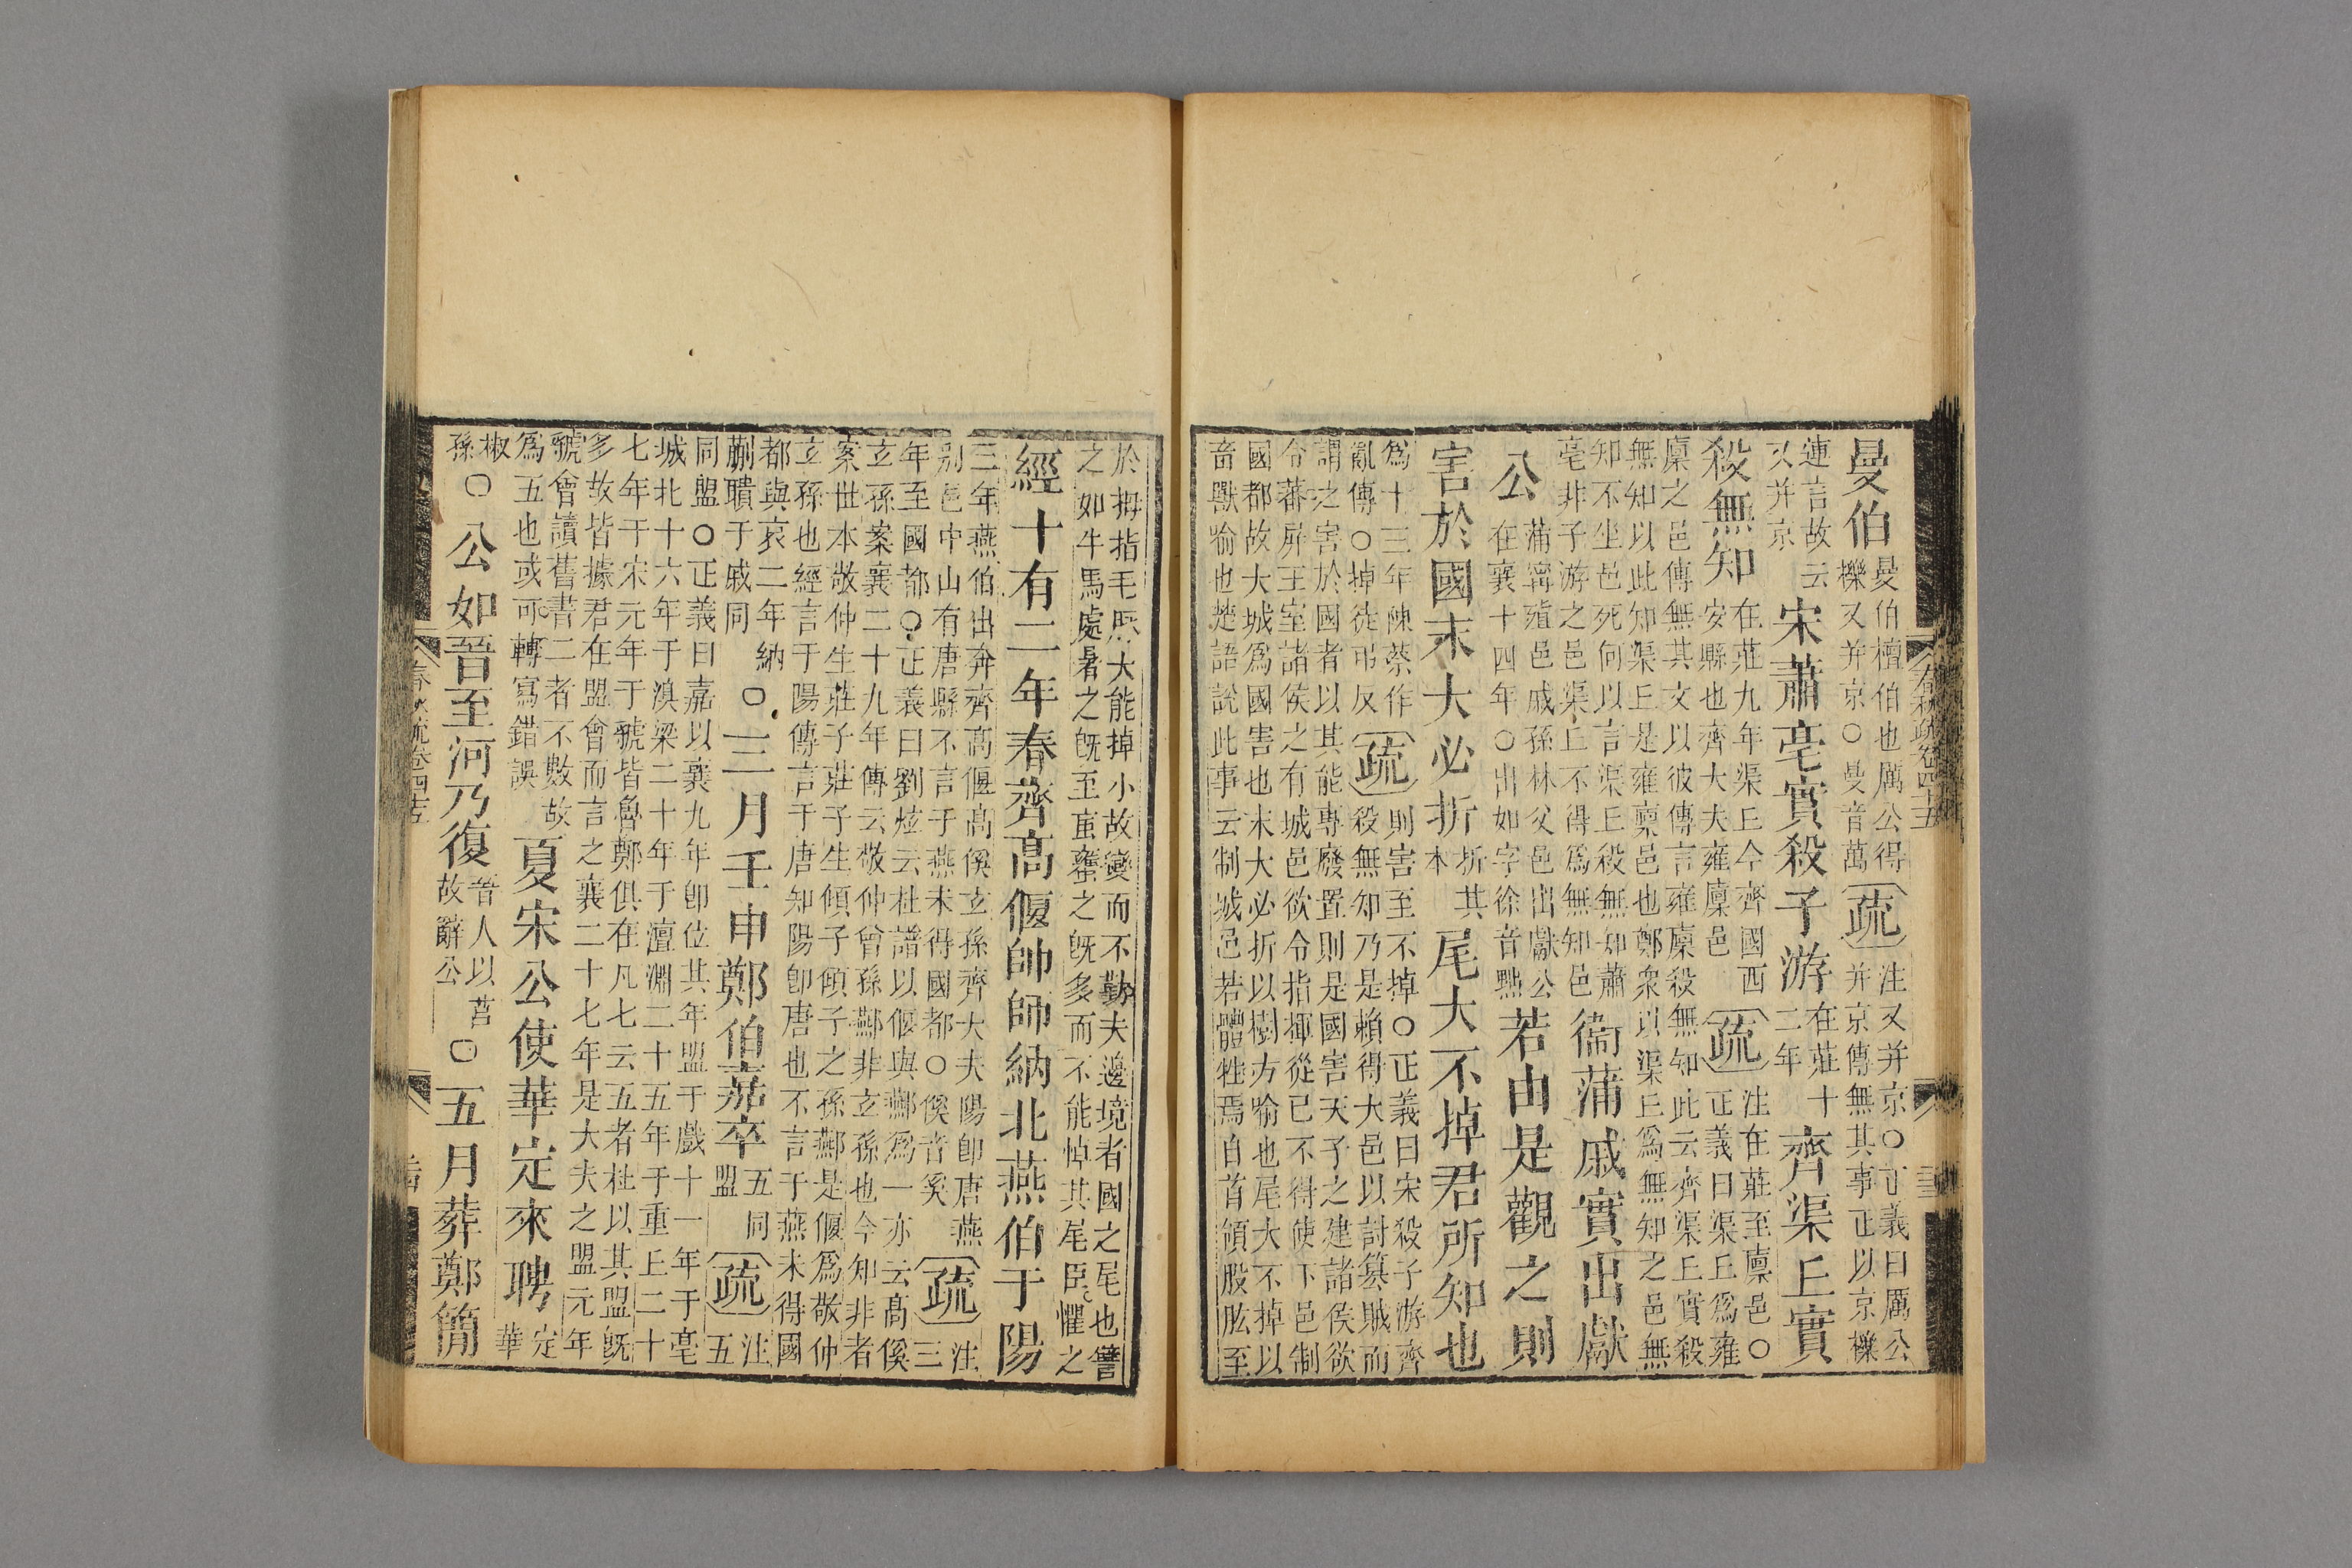 春秋疏卷四十五
曼伯
曼伯檀伯也厲公得
櫟又并京○曼音萬
疏
注又并京○正義曰厲公
并京傳無其事正以京櫟
連言故云
又并京
宋蕭亳實殺子游
在莊十
二年
齊渠丘實
殺無知
在莊九年渠丘今齊國西
安縣也齊大夫雍廩邑
疏
注在莊至廩邑○
正義曰渠丘爲雍
廩之邑傳無其文以彼傳言雍廩殺無知此云齊渠丘實殺
無知以此知渠丘是雍廩邑也鄭衆以渠丘爲無知之邑無
知不坐邑死何以言渠丘殺無知蕭
亳非子游之邑渠丘不得爲無知邑
衞蒲戚實出獻
公
蒲甯殖邑戚孫林父邑出獻公
在襄十四年○出如字徐音黜
若由是觀之則
害於國末大必折
折其
本
尾大不掉君所知也
爲十三年陳蔡作
亂傳○掉徒弔反
疏
則害至不掉○正義曰宋殺子游齊
殺無知乃是賴得大邑以討簒賊而
謂之害於國者以其能專廢置則是國害天子之建諸侯欲
令蕃屏王室諸侯之有城邑欲令指揮從已不得使下邑制
國都故大城爲國害也末大必折以樹木喻也尾大不掉以
畜獸喻也楚語說此事云制城邑若體性焉自首領股肱至
於拇指毛脈大能掉小故變而不勤夫邊境者國之尾也譬
之如牛馬處暑之旣至䖟䗽之旣多而不能掉其尾臣懼之
經十有二年春齊高偃帥師納北燕伯于陽
三年燕伯出奔齊高偃高傒玄孫齊大夫陽卽唐燕
別邑中山有唐縣不言于燕未得國都○傒音奚
疏
注
三
年至國都○正義曰劉炫云杜譜以偃與酀爲一亦云高傒
玄孫案襄二十九年傳云敬仲曾孫酀非玄孫也今知非者
案世本敬仲生莊子莊子生傾子傾子之孫酀是偃爲敬仲
玄孫也經言于陽傳言于唐知陽卽唐也不言于燕未得國
都與哀二年納
蒯聵于戚同
○三月壬申鄭伯嘉卒
五同
盟
疏
注
五
同盟○正義曰嘉以襄九年卽位其年盟于戲十一年于亳
城北十六年于湨梁二十年于澶淵二十五年于重丘二十
七年于宋元年于虢皆魯鄭俱在凡七云五者杜以其盟旣
多故皆據君在盟會而言之襄二十七年是大夫之盟元年
虢會讀舊書二者不數故
爲五也或可轉寫錯誤
夏宋公使華定來聘
定
華
椒
孫
○公如晉至河乃復
晉人以莒
故辭公
○五月葬鄭簡